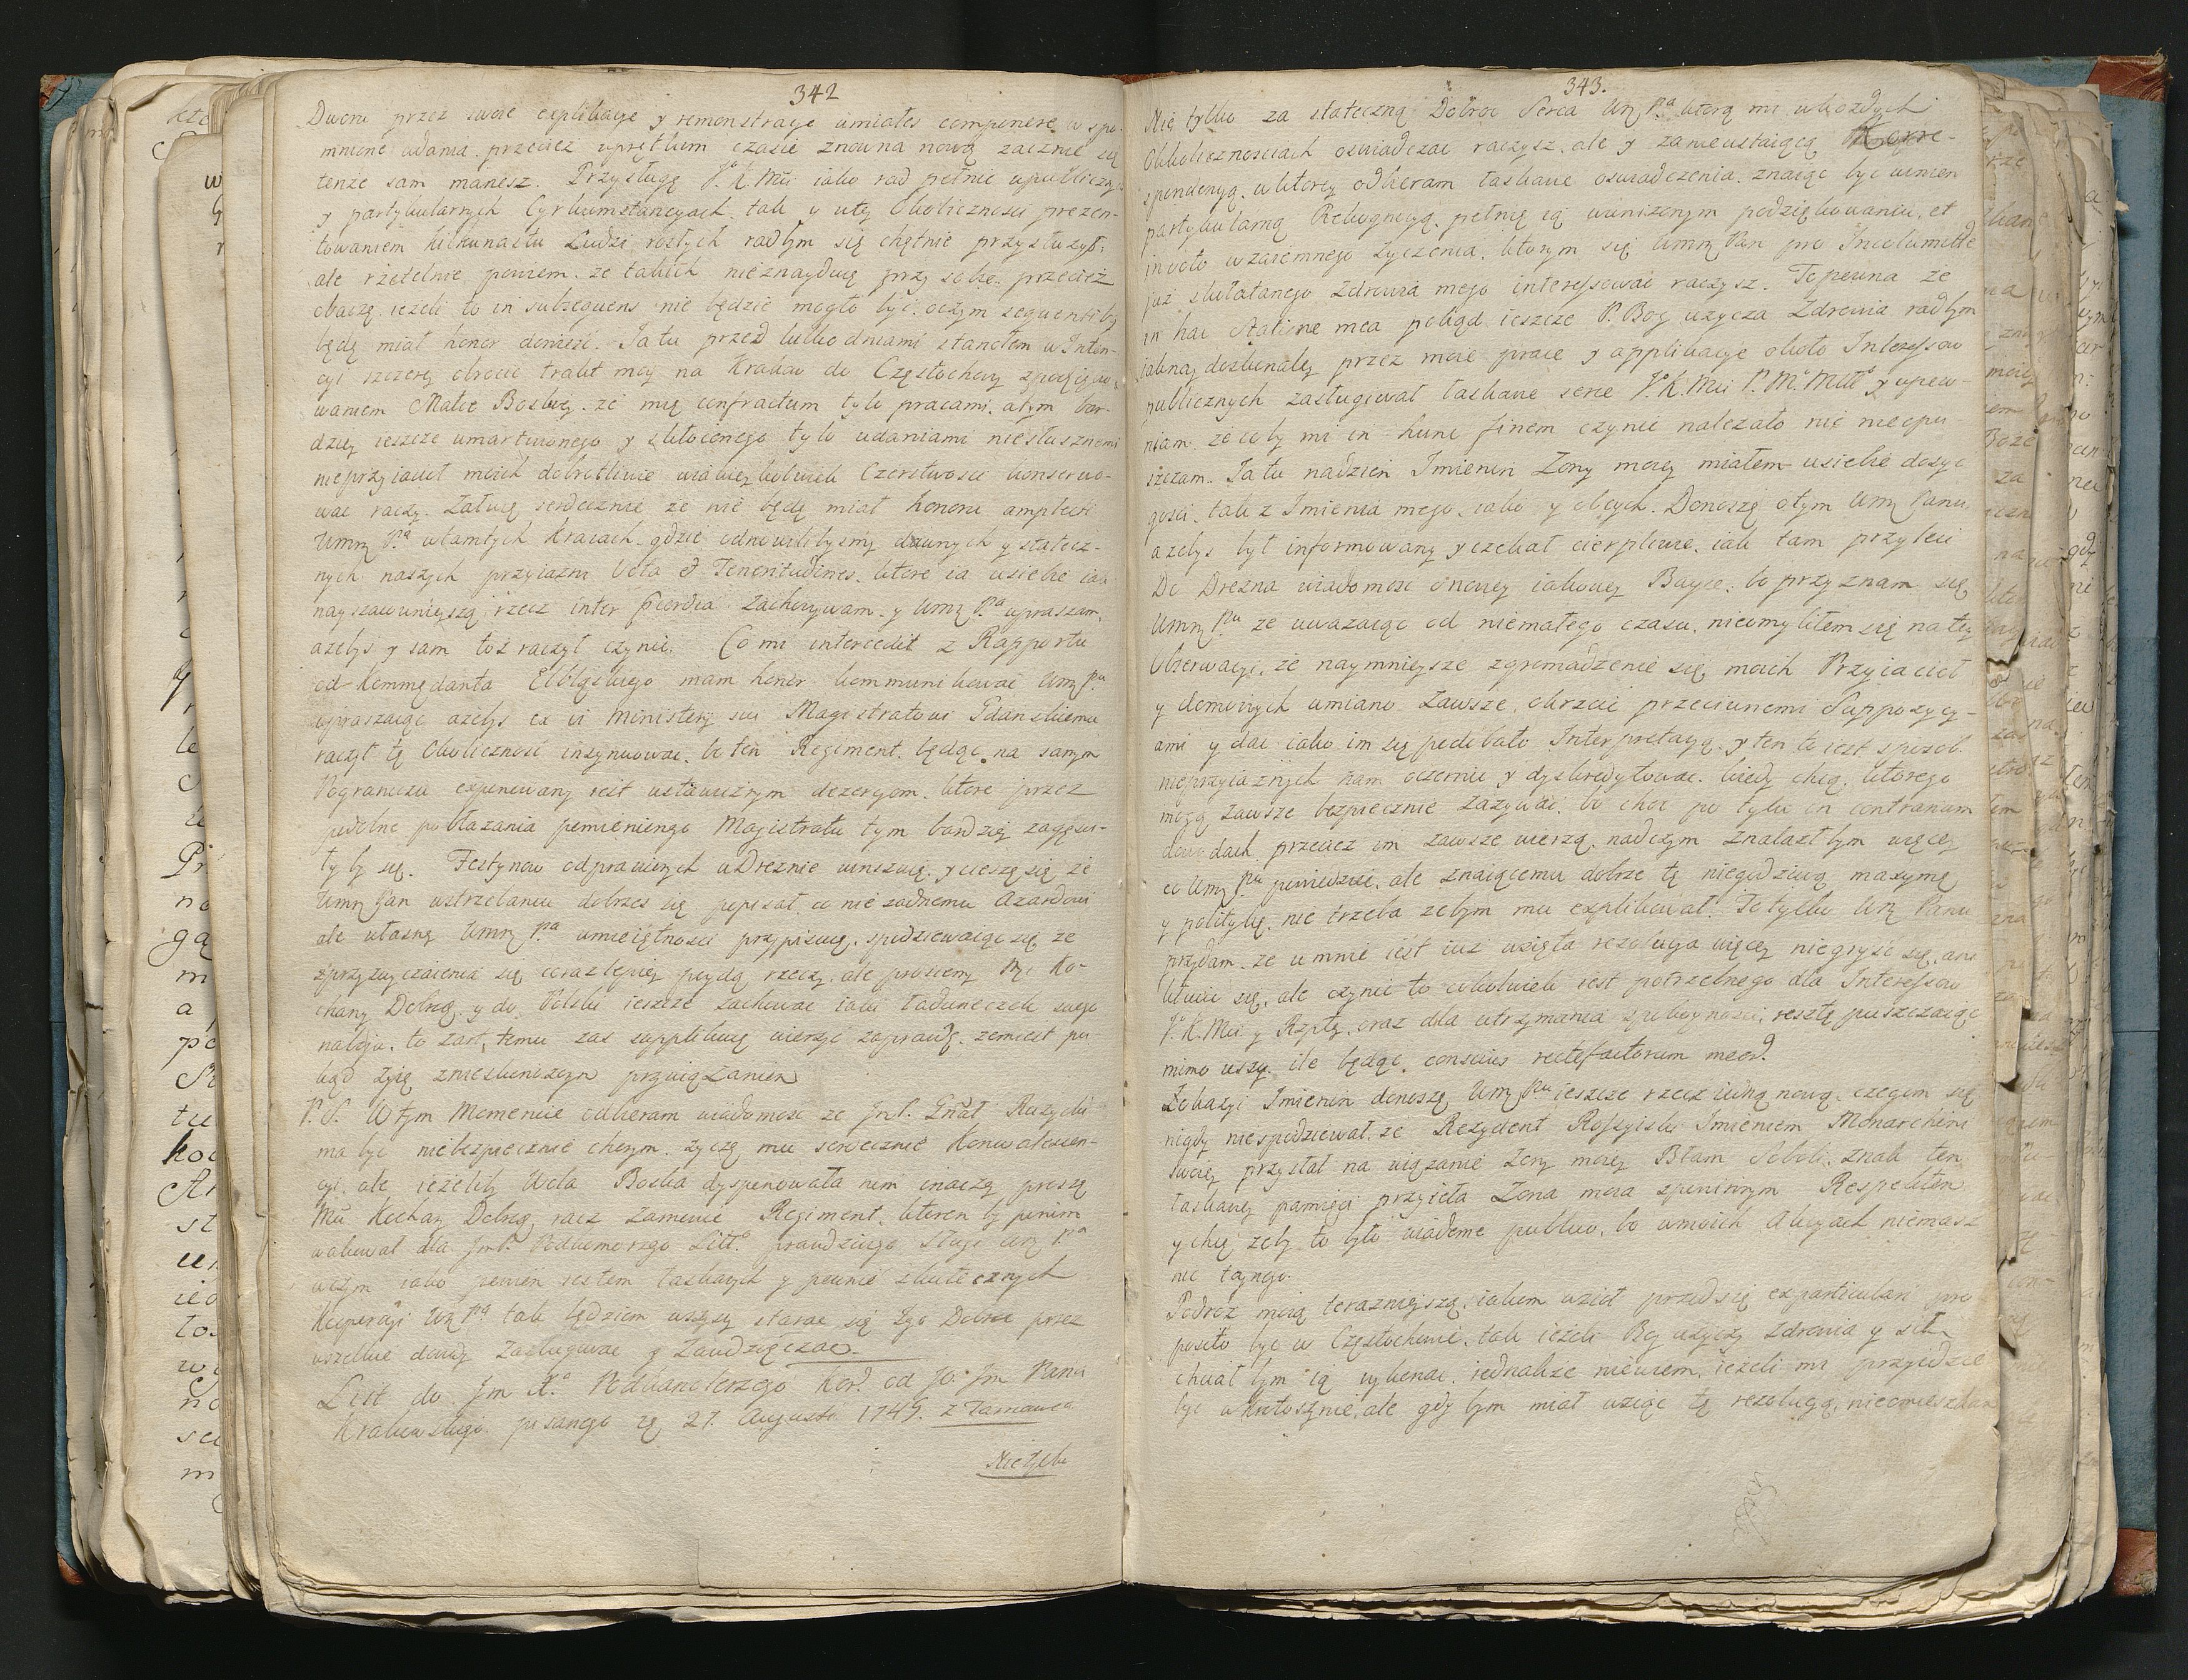 342
Dworu przez swoie explikacye y remonstracye umiałeś componere wspo-
mnione udania przecież wprętkim czasie znowu na nową zacznie się
tenże sam manesz. Przysługę J. K. Mci iako rad pełnić w publicznych
y partykularnych Cyrkumstancyach tak y w tey okoliczności prezen-
towaniem kilkunastu Ludzi rosłych radbym się chętnie przysłużył,
ale rzetelnie powiem, że takich nieznayduię przy sobie, przecież
obaczę ieżeli to in subsequens nie będzie mogło być, o czym sequentibus
będę miał honor donieść. Ja tu przed kilko dniami stanąłem w Inten-
cyi szczerey obrocić trakt moy na Krakow do Częstochowy z podzięko-
waniem Matce Boskiey, że mię confractum tylo pracami, a tym bar-
dziey ieszcze umartwionego y skłoconego tylo udaniami niesłusznemi
nieprzyiacioł moich dobrotliwie w iakieykolwiek Czerstwości konserwo-
wać raczy. Załuię serdecznie że nie będę miał honoru amplecti
WmM Pa w tamtych Kraiach, gdzie odnowilibyśmy dawnych y statecz-
nych naszych przyiaźni Vota et Teneritudines, ktore ia u siebie iak
nayszacownieyszą rzecz inter pectora zachowywam, y WmM Pa upraszam,
azebyś y sam toż raczył czynić. Co mi intercedit z Rapportu
od Kommędanta Elbląskiego mam honor kommunikować WmM Pu
upraszaiąc azebyś ex vi ministerij sui Magistratowi Gdanskiemu
raczył tę okoliczność insynuować, bo ten Regiment będąc na samym
Pograniczu exponowany iest ustawicznym dezercyom, ktore przez
podobne pobłażania pomienionego Magistratu tym bardziey zagęści-
ły by się. Festynow odprawionych w Dreznie winszuię, y cieszę się że
WmM Pan w strzelaniu dobrześ się popisał, co nie żadnemu Azardowi
ale własney WmM Pa umieiętności przypisuię, spodziewaiąc się że
z przyzwyczaienia się coraz lepiey poydą rzeczy, ale prosiemy Moy Ko-
chany Dobrży y do Polski ieszcze zachować iaki ładuneczek swego
naboju, to żart, temu zaś supplikuię wierzyć zaprawdę, żem iest po
kąd żyię z nieskończonym przywiązaniem
P. S. W tym Momencie odbieram wiadomość ze JmP. Gnał Rużycki
ma być niebezpiecznie chorym, życzę mu serdecznie Konwalescen-
cyi, ale ieżeliby Wola Boska dysponowała nim inaczey proszę
Mci Kochany Dobrży racz zamowić Regiment, ktoren by powin
wakował dla JmP. Podkomorzego Litt. prawdziwego Sługi WM Pa
w czym iako pewien iestem łaskawych y pewnie skutecznych
Kooperacyi WM Pa tak będziem wszyscy starać się Jego Dobroć przez
wszelkie dowody Zasługiwać y Zawdzięczać.
List do Jm X. Podkanclerzego Kor. od Jo. Jm Pana
Krakowskiego pisanego dę 27. Augusti 1749. z Tarnowca
Nie tylko
343.
Nie tylko za stateczną Dobroć Serca WM Pa ktorą mi w każdych
Okolicznościach oswiadczać raczysz, ale y za nieustaiącą Korre-
spondencyą, w ktorey odbieram łaskawe oswiadczenia, znaiąc być winien
partykularną Rekognicyą, pełnię ią w unizonym podziękowaniu, et
in voto wzaiemnego życzenia, ktorym się WmM Pan pro Incolumitate
już skołatanego Zdrowia mego interessować raczysz. To pewna że
in hac Statione mea pokąd ieszcze P. Bog użycza Zdrowia radbym
iaknaydoskonaley przez moie prace y applikacye około Interessow
publicznych zasługiwał łaskawe serce J. K. Mci P. M. Młł y upew-
niam, że coby mi in hunc finem czynić należało nic nieopu
szczam. Ja tu na dzień Imienin Żony moiey miałem u siebie dosyć
gości, tak z Imienia mego, iako y obcych. Donoszę o tym WmM Panu,
azebyś był informowany y czekał cierpliwie, iak tam przyleci
Do Drezna wiadomość o nowey iakowey Bayce, bo przyznam się
WmM Pu że uważaiąc od niemałego czasu, nieomyliłem się na tey
Obserwacyi, że naymnieysze zgromadzenie się moich Przyiacioł
y domowych umiano zawsze okrzcić przeciwnemi Suppozycy-
ami y dać iako im się podobało Interpretacyą, y ten to iest sposob
nieprzyiaznych nam oczernić y dyskredytować, kiedy chcą, ktorego
mogą zawsze bezpiecznie zażywać, bo choć po tylu in contrarium
dowodach, przecież im zawsze wierzą, nad czym znalazłbym więcey
co WmM Pu powiedzieć, ale znaiącemu dobrze tę niegodziwą maxymę
y politykę, nie trzeba żebym mu explikował. To tylko WM Panu
przydam, że u mnie iest iuż wzięta rezolucya więcey niegryść się, ani
kłucić się, ale czynić to cokolwiek iest potrzebnego dla Interessow
J. K. Mci y Rzptey, oraz dla utrzymania spokoyności, resztę puszczaiąc
mimo uszy, ile będąc conscius rectefactorum meor.
Z okazyi Imienin donoszę WmM Pu ieszcze rzecz iedną nową, czegom się
nigdy niespodziewał, że Rezydent Rossyiski Imieniem Monarchini
Swoiey przysłał na wiązanie Żony moiey Błam Soboli, znak ten
łaskawey pamięci przyięła Żona moia z powinnym Respektem
y chcę żeby to było wiadome publico, bo w moich Akcyach niemasz
nic taynego.
Podroż moią terazniejszą, iakom wziął przed się ex particulari pro
posito być w Częstochowie, tak ieżeli Bog użyczy Zdrowia y sił,
chciałbym ią wykonać, iednakże niewiem, ieżeli mi przyidzie
być w Krotoszynie, ale gdybym miał wziąć tę rezolucyą, nieomieszkam